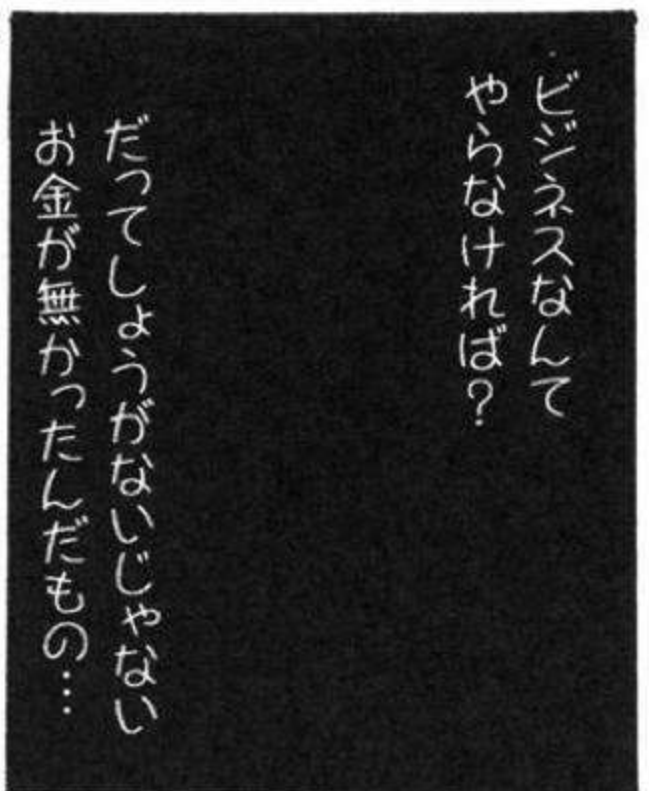 ビジネスなんて
やらなければ？
だってしょうがないじゃない
お金が無かったんだもの…